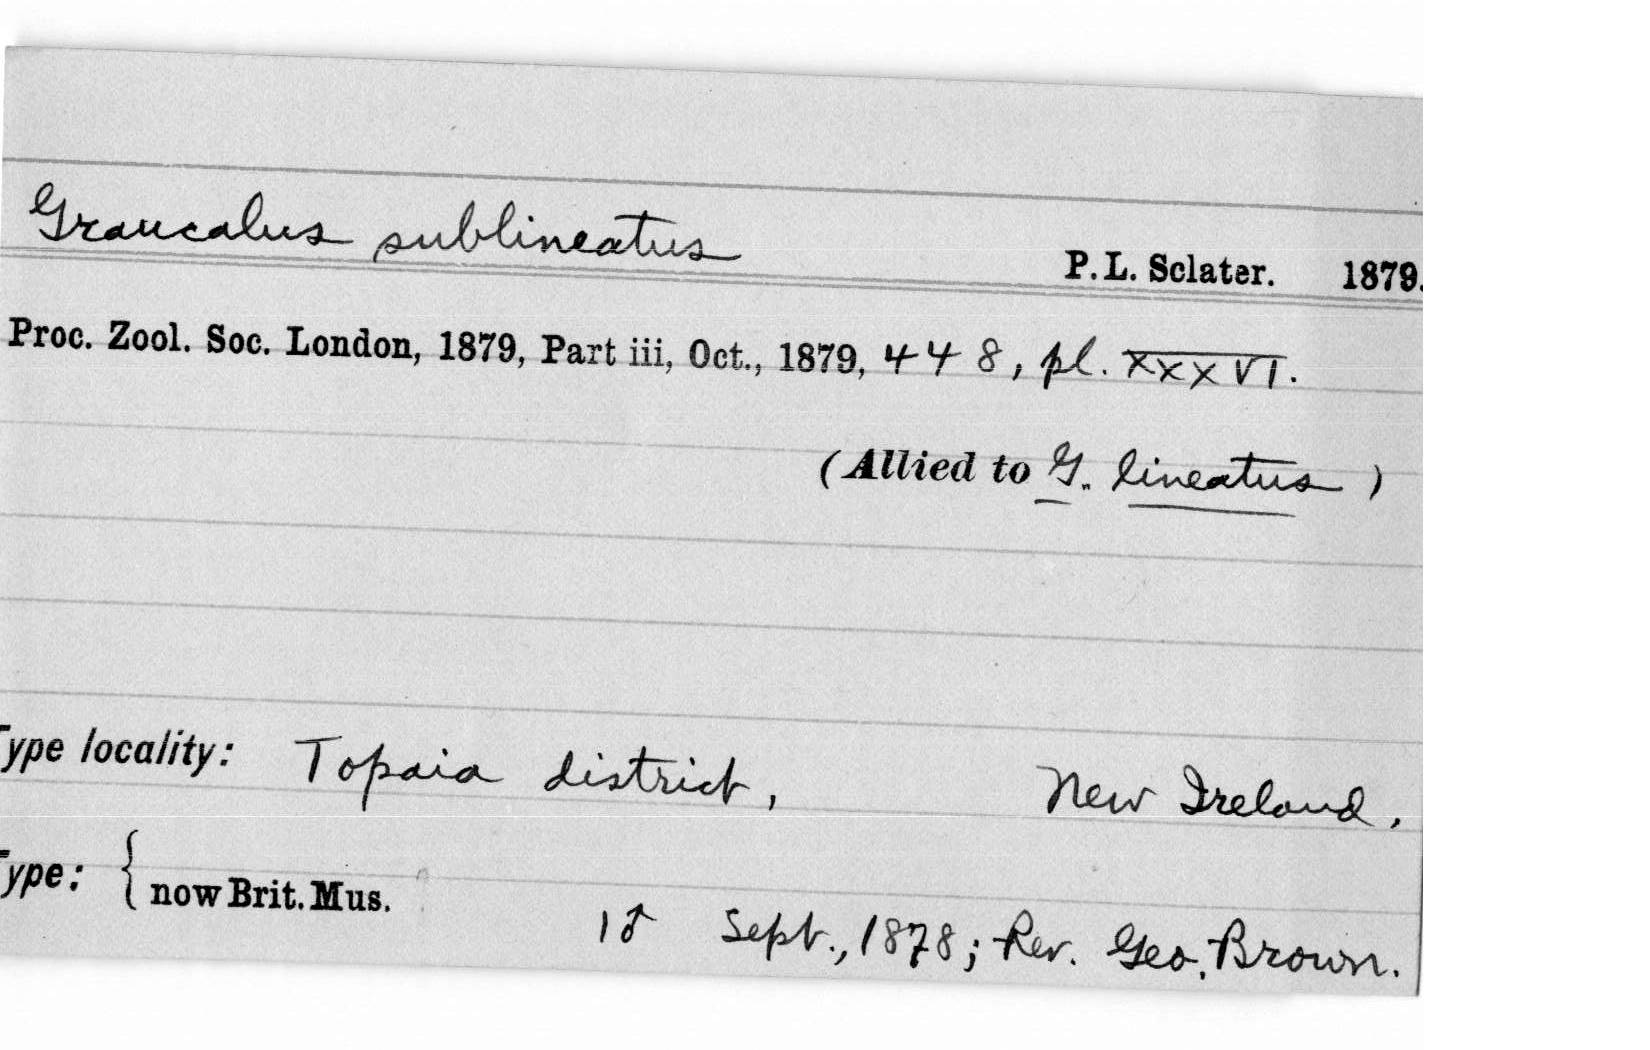 Graucalus sublineatus P. L. Sclater. 1879.
Proc. Zool. Soc. London, 1879, Part iii, Oct., 1879, 448, pl. XXXVI.
(Allied to G. lineatus )
Type locality: Topaia district, New Ireland,
Type: { now Brit. Mus.
1♂ Sept., 1878; Rev. Geo. Brown.